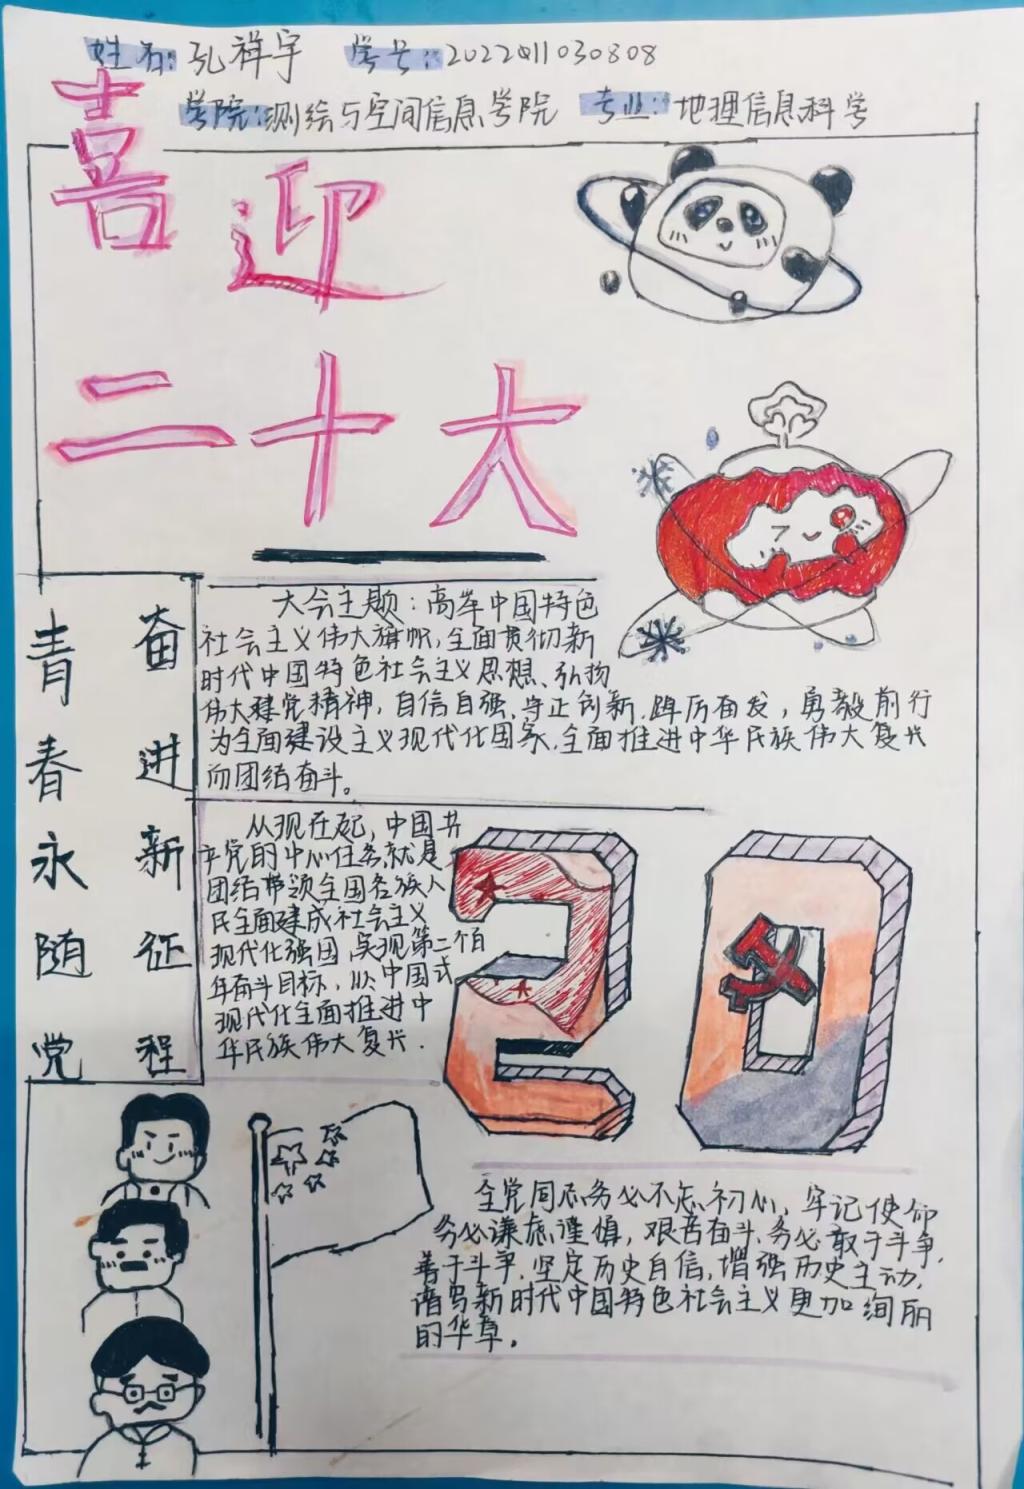 姓名:孔祥宇 学号:2022411030808
学院:测绘与空间信息学院 专业:地理信息科学
喜迎
二十大
青春永随党
奋进新征程
大会主题:高举中国特色
社会主义伟大旗帜,全面贯彻新
时代中国特色社会主义思想、弘扬
伟大建党精神,自信自强、守正创新、踔厉奋发,勇毅前行
为全面建设主义现代化国家、全面推进中华民族伟大复兴
而团结奋斗。
从现在起,中国共
产党的中心任务就是
团结带领全国各族人
民全面建成社会主义
现代化强国,实现第二个百
年奋斗目标,以中国式
现代化全面推进中
华民族伟大复兴.
20
全党同志务必不忘初心、牢记使命
务必谦虚谨慎,艰苦奋斗、务必敢于斗争,
善于斗争、坚定历史自信,增强历史主动,
谱写新时代中国特色社会主义更加绚丽
的华章。